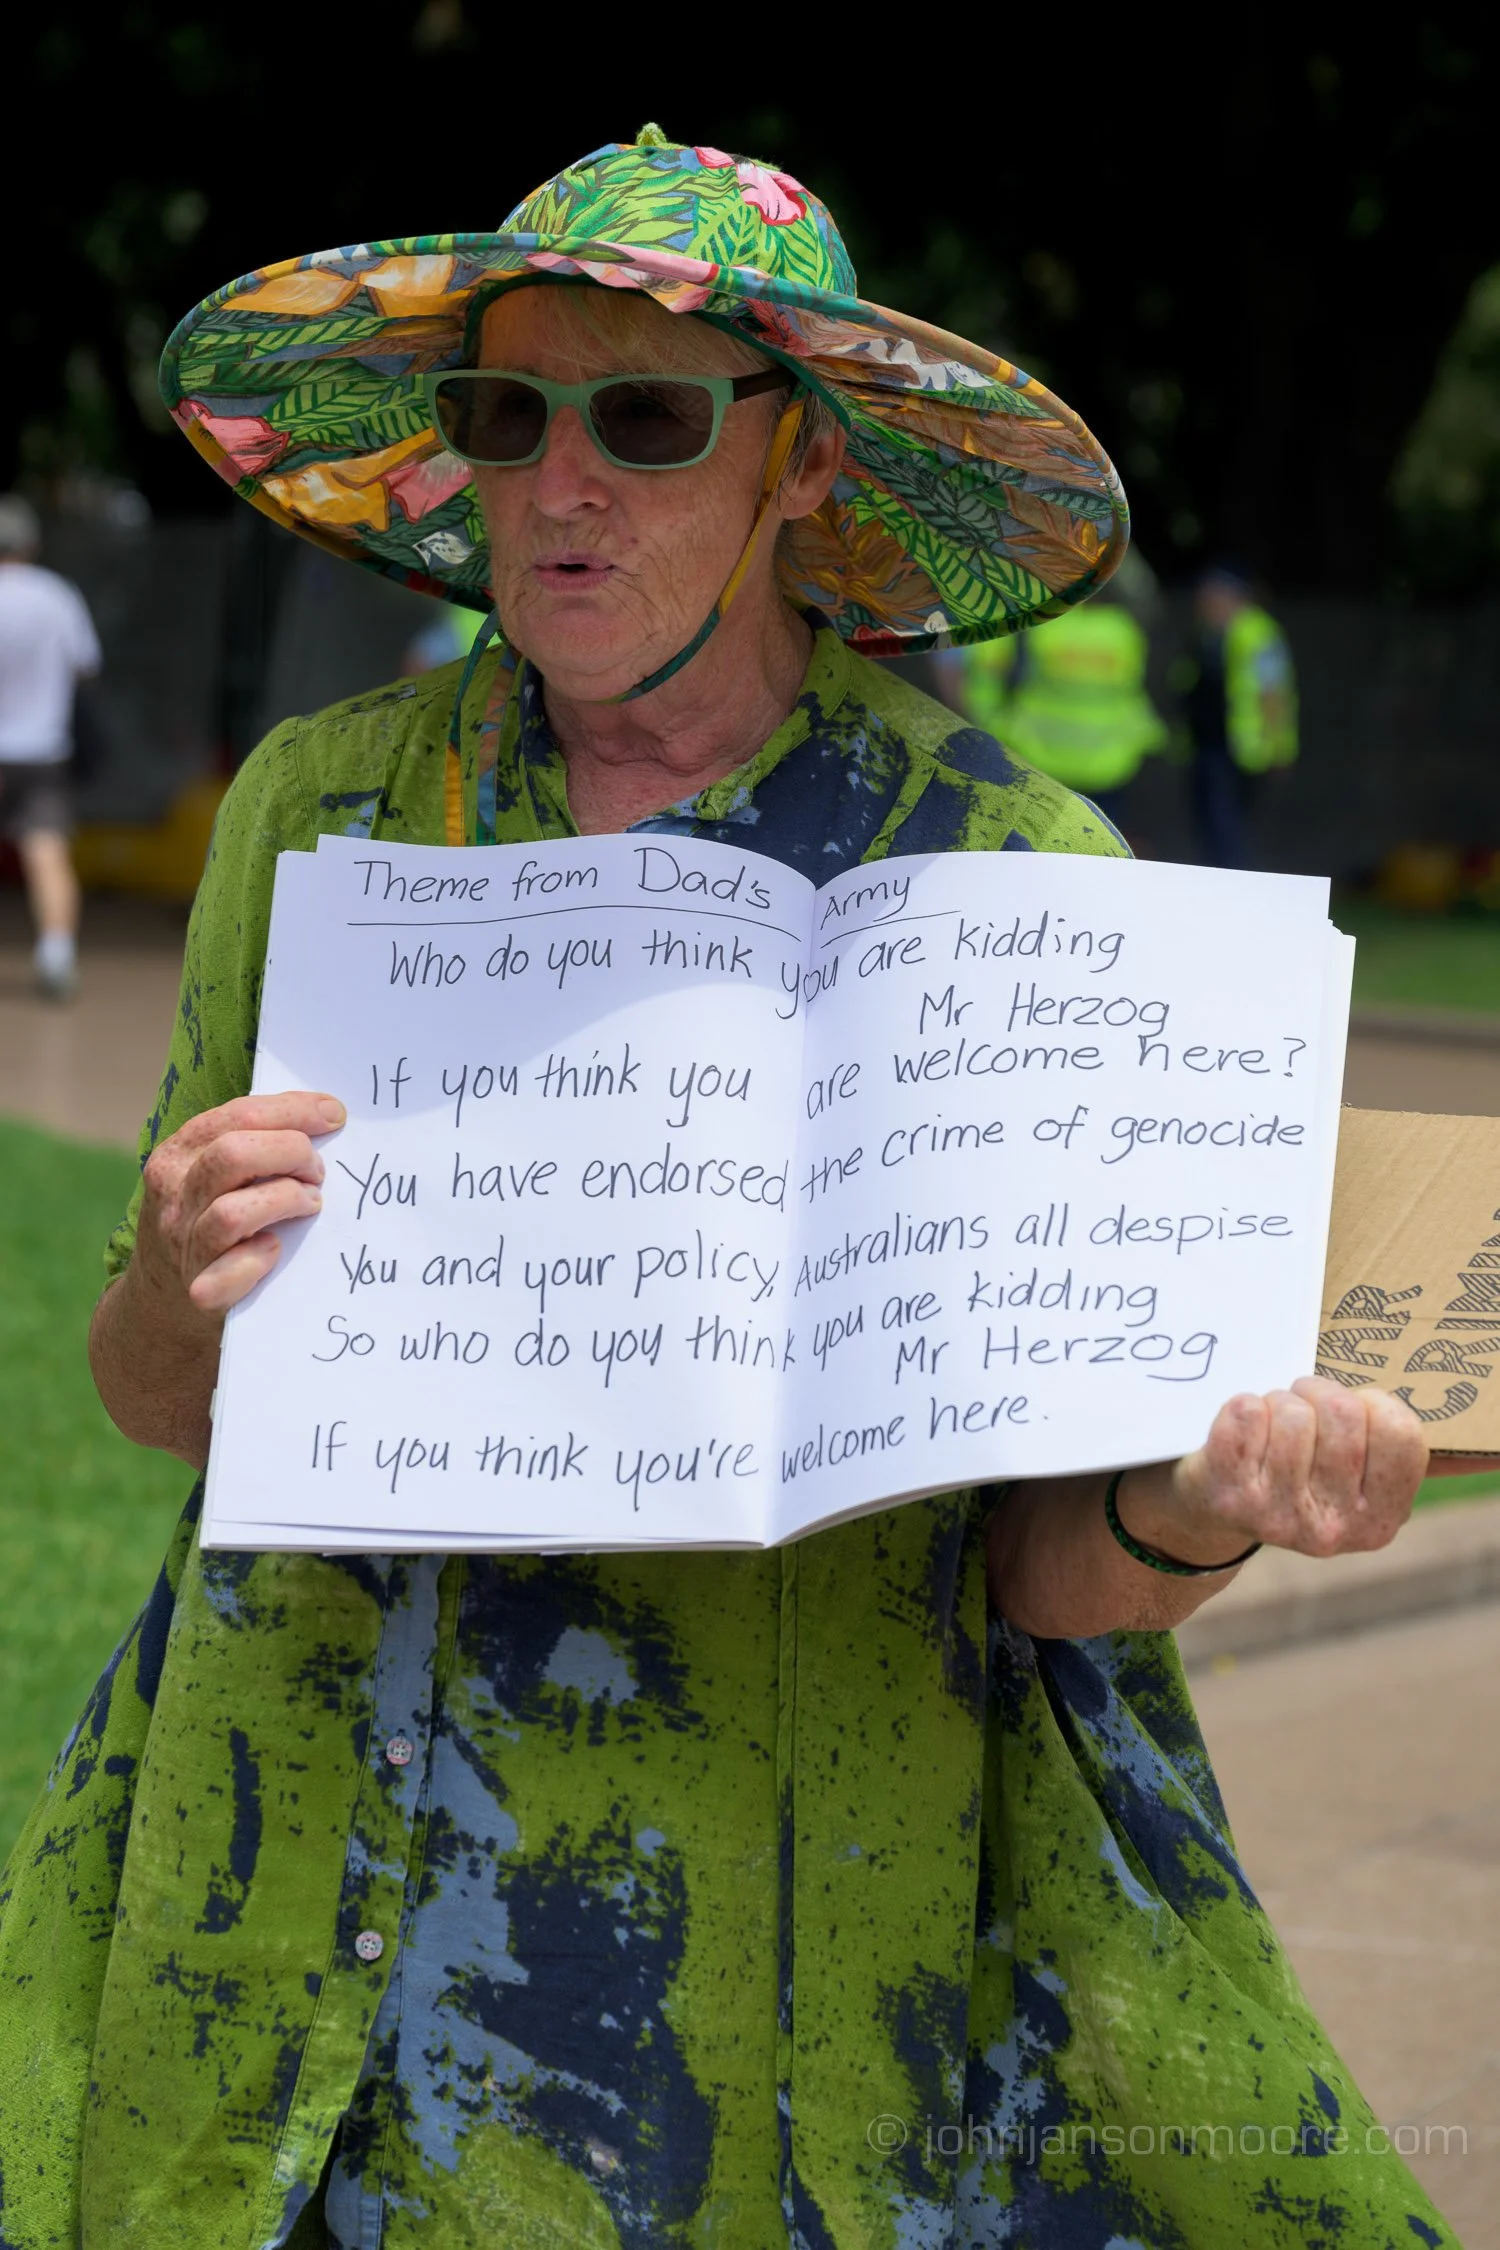 Theme from Dad's Army
Who do you think you are kidding
Mr Herzog
If you think you are welcome here?
You have endorsed the crime of genocide
You and your policy, Australians all despise
So who do you think you are kidding
Mr Herzog
If you think you're welcome here.
WAR
© johnjansonmoore.com